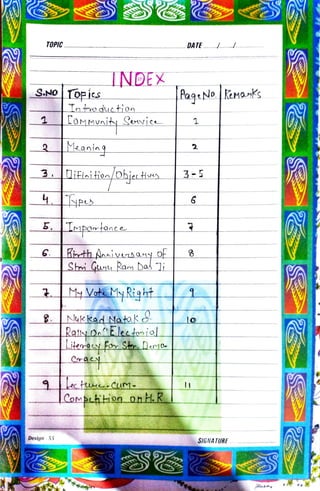 TOPIC DATE / /
INDEX
S.NO Topics Page No Remarks
Introduction
1 Community Service 1
2 Meaning 2
3. Difinition/Objectives 3-5
4. Types 6
5. Importance 7
6. Birth Anniversary Of 8
Shri Guru Ram Das Ji
7. My Vote My Right 9
8. Nukkad Natak & 10
Rally On "Electorial
Literacy For Stn. Demo-
cracy
9 Lecture-Cum- 11
Competition on H.R
Design - 55 SIGNATURE